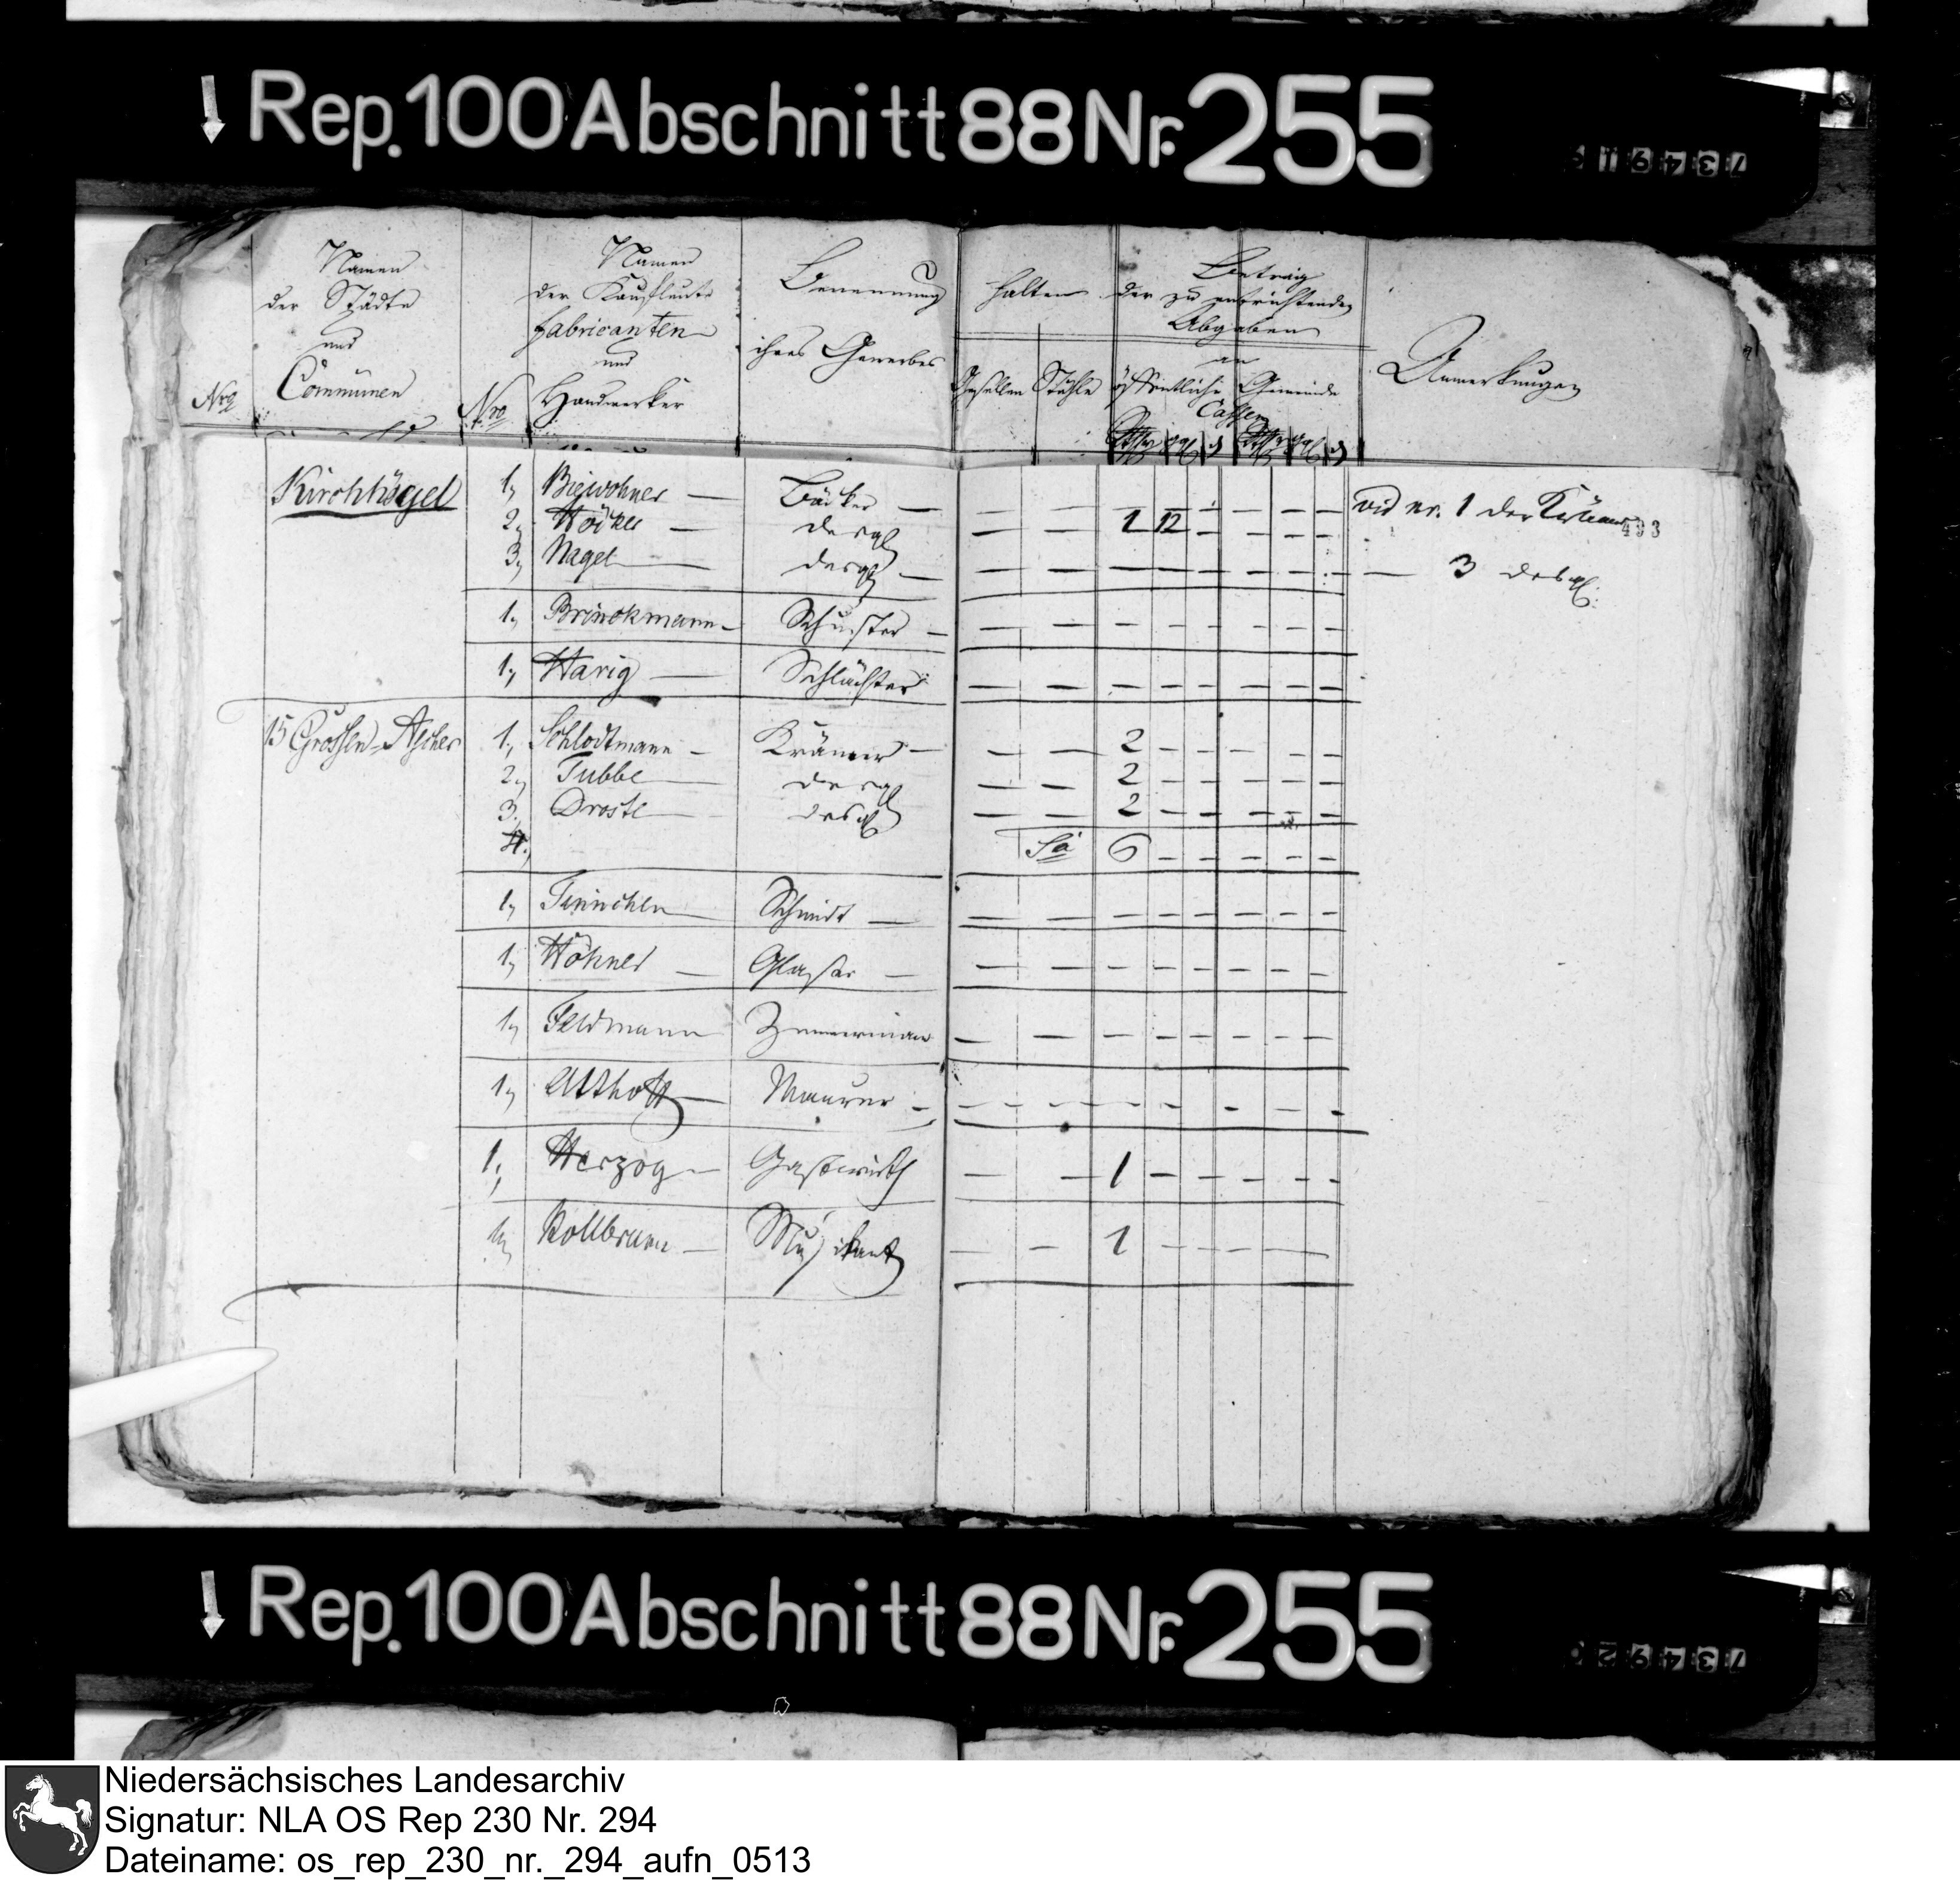 Rep. 100 Abschnitt 88 Nr. 255
Nro
Namen der Städte und Communen
Nro
Namen der Kaufleute Fabricanten und Handwerker
Benennung ihres Gewerbes
halten
Gesellen Stühle
Betrag der zu entrichtenden Abgaben an
öffentliche Gemeinde
Cassen
Anmerkungen
Kirchhögel 1, Biewohner — Bäcker — — — — — — — — — vid nr. 1 der Krämer
493
2, Höcker — desgl — — 1 12 — — — —
3, Nagel — desgl — — — — — — — — — — 3 desgl.
1, Brinckmann — Schuster — — — — — — — — —
1, Harig — Schlächter — — — — — — — —
15 Grossen-Ascher 1, Schlodtmann — Krämer — — — 2 — — — — —
2, Tubbe — desgl — — 2 — — — — —
3, Droste — desgl — — 2 — — — — —
4, Sa 6 — — — — —
1, Tinnchen — Schmidt — — — — — — — — —
1, Höhner — Glaser — — — — — — — — —
1, Feldmann Zimmerman — — — — — — — —
1, Althoff — Maurer — — — — — — — — —
1, Herzog — Gastwirth — — 1 — — — — —
1, Kollbrunn — Musikant — — 1 — — — — —
Rep. 100 Abschnitt 88 Nr. 255
Niedersächsisches Landesarchiv
Signatur: NLA OS Rep 230 Nr. 294
Dateiname: os_rep_230_nr._294_aufn_0513